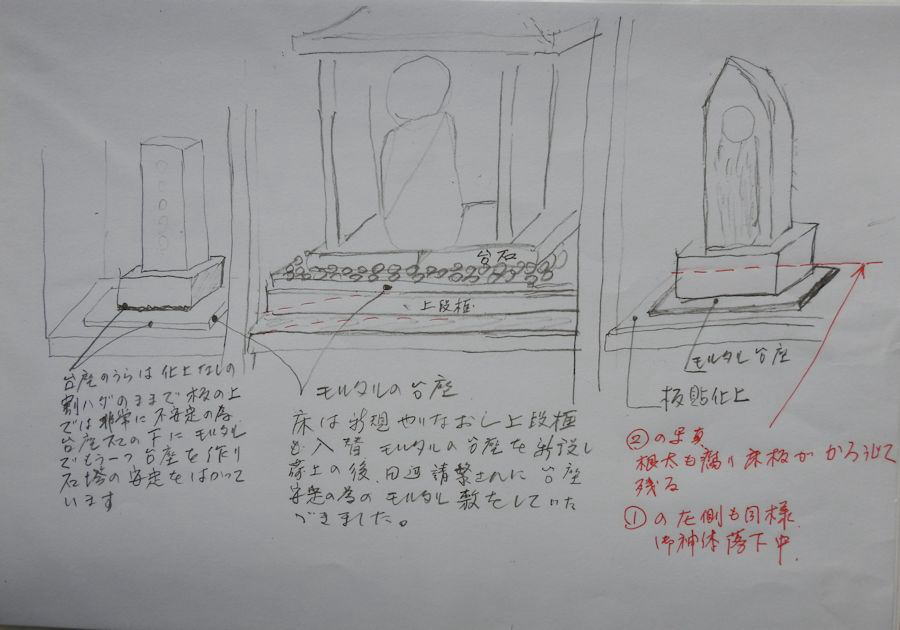 台石
上段框
台座のうらは仕上なしの
割ハダのままで板の上
では非常に不安定の為
台座大の下にモルタル
でもう一つ台座を作り
石塔の安定をはかって
います
モルタルの台座
床は新規やりなおし上段框
も入替 モルタルの台座を新設し
の後
安定の為のモルタル敷をしていた
だきました。
モルタル台座
板貼仕上
②の写真
根太も腐り床板がかろうじて
残る
①の左側も同様
御神体落下中